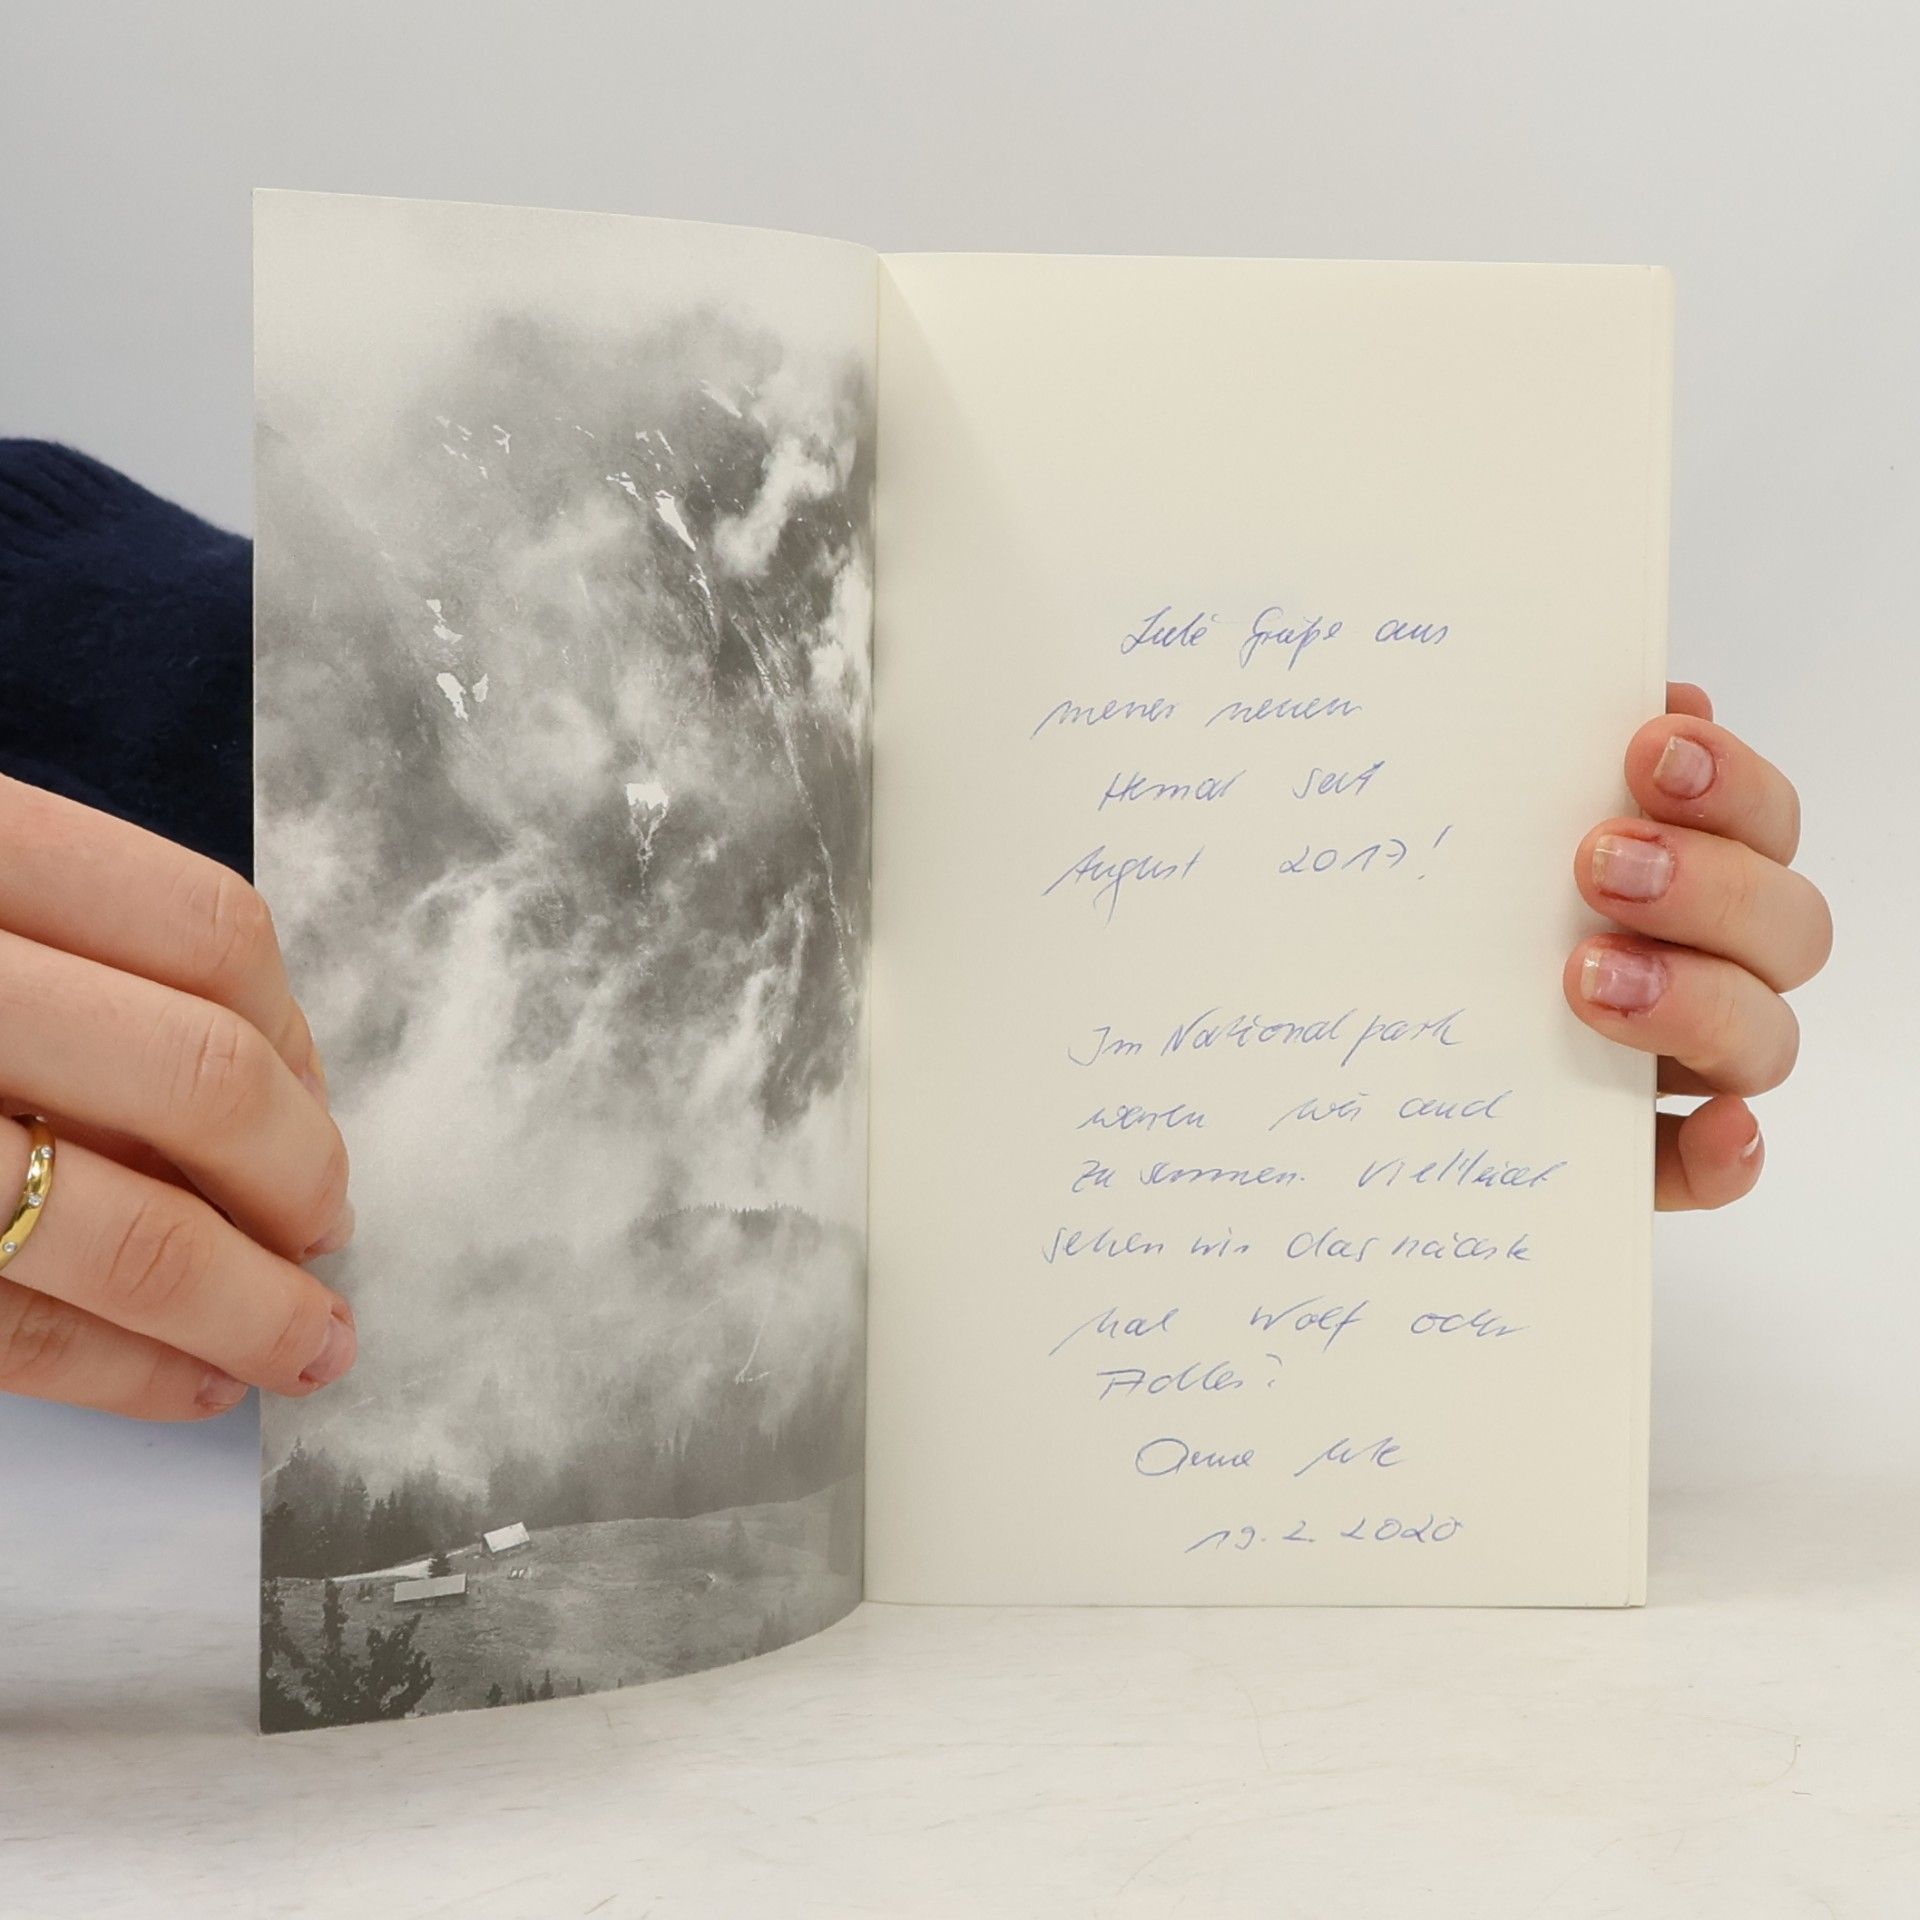 Liebe Grüße aus
meiner neuen
Heimat seit
August 2017!
Im Nationalpark
waren wir auch
zusammen. Vielleicht
sehen wir das nächste
Mal Wolf oder
Adler?
Anne Ute
19.2.2020